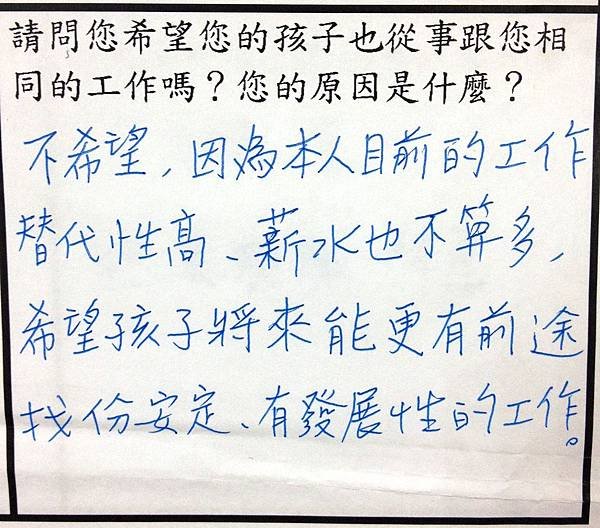 請問您希望您的孩子也從事跟您相
同的工作嗎？您的原因是什麼？
不希望，因為本人目前的工作
替代性高、薪水也不算多，
希望孩子將來能更有前途
找份安定、有發展性的工作。